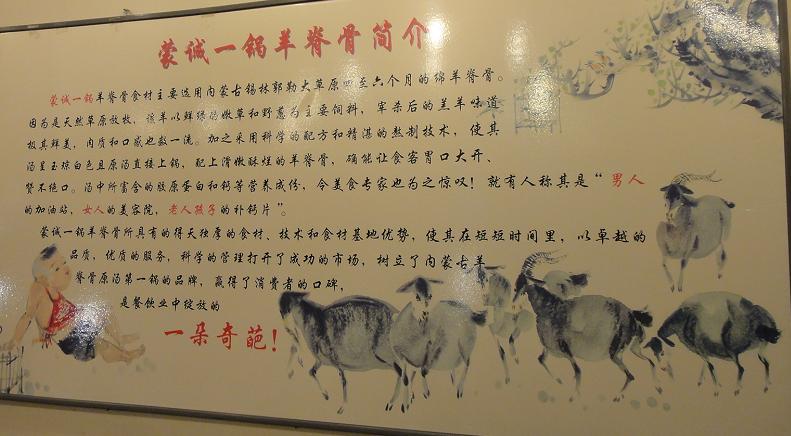 蒙诚一锅羊脊骨简介
蒙诚一锅羊脊骨食材主要选用内蒙古锡林郭勒大草原四至六个月的绵羊脊骨。
因为是天然草原放牧，该羊以鲜绿的嫩草和野葱为主要饲料，宰杀后的羔羊味道
极其鲜美，肉质和口感也数一流。加之采用科学的配方和精湛的熬制技术，使其
汤呈玉琼白色且原汤直接上锅，配上滑嫩酥烂的羊脊骨，确能让食客胃口大开、
赞不绝口。汤中所富含的胶原蛋白和钙等营养成份，令美食专家也为之惊叹！就有人称其是“男人
的加油站，女人的美容院，老人孩子的补钙片”。
蒙诚一锅羊脊骨所具有的得天独厚的食材、技术和食材基地优势，使其在短短时间里，以卓越的
品质，优质的服务，科学的管理打开了成功的市场，树立了内蒙古羊
脊骨原汤第一锅的品牌，赢得了消费者的口碑，
是餐饮业中绽放的
一朵奇葩！